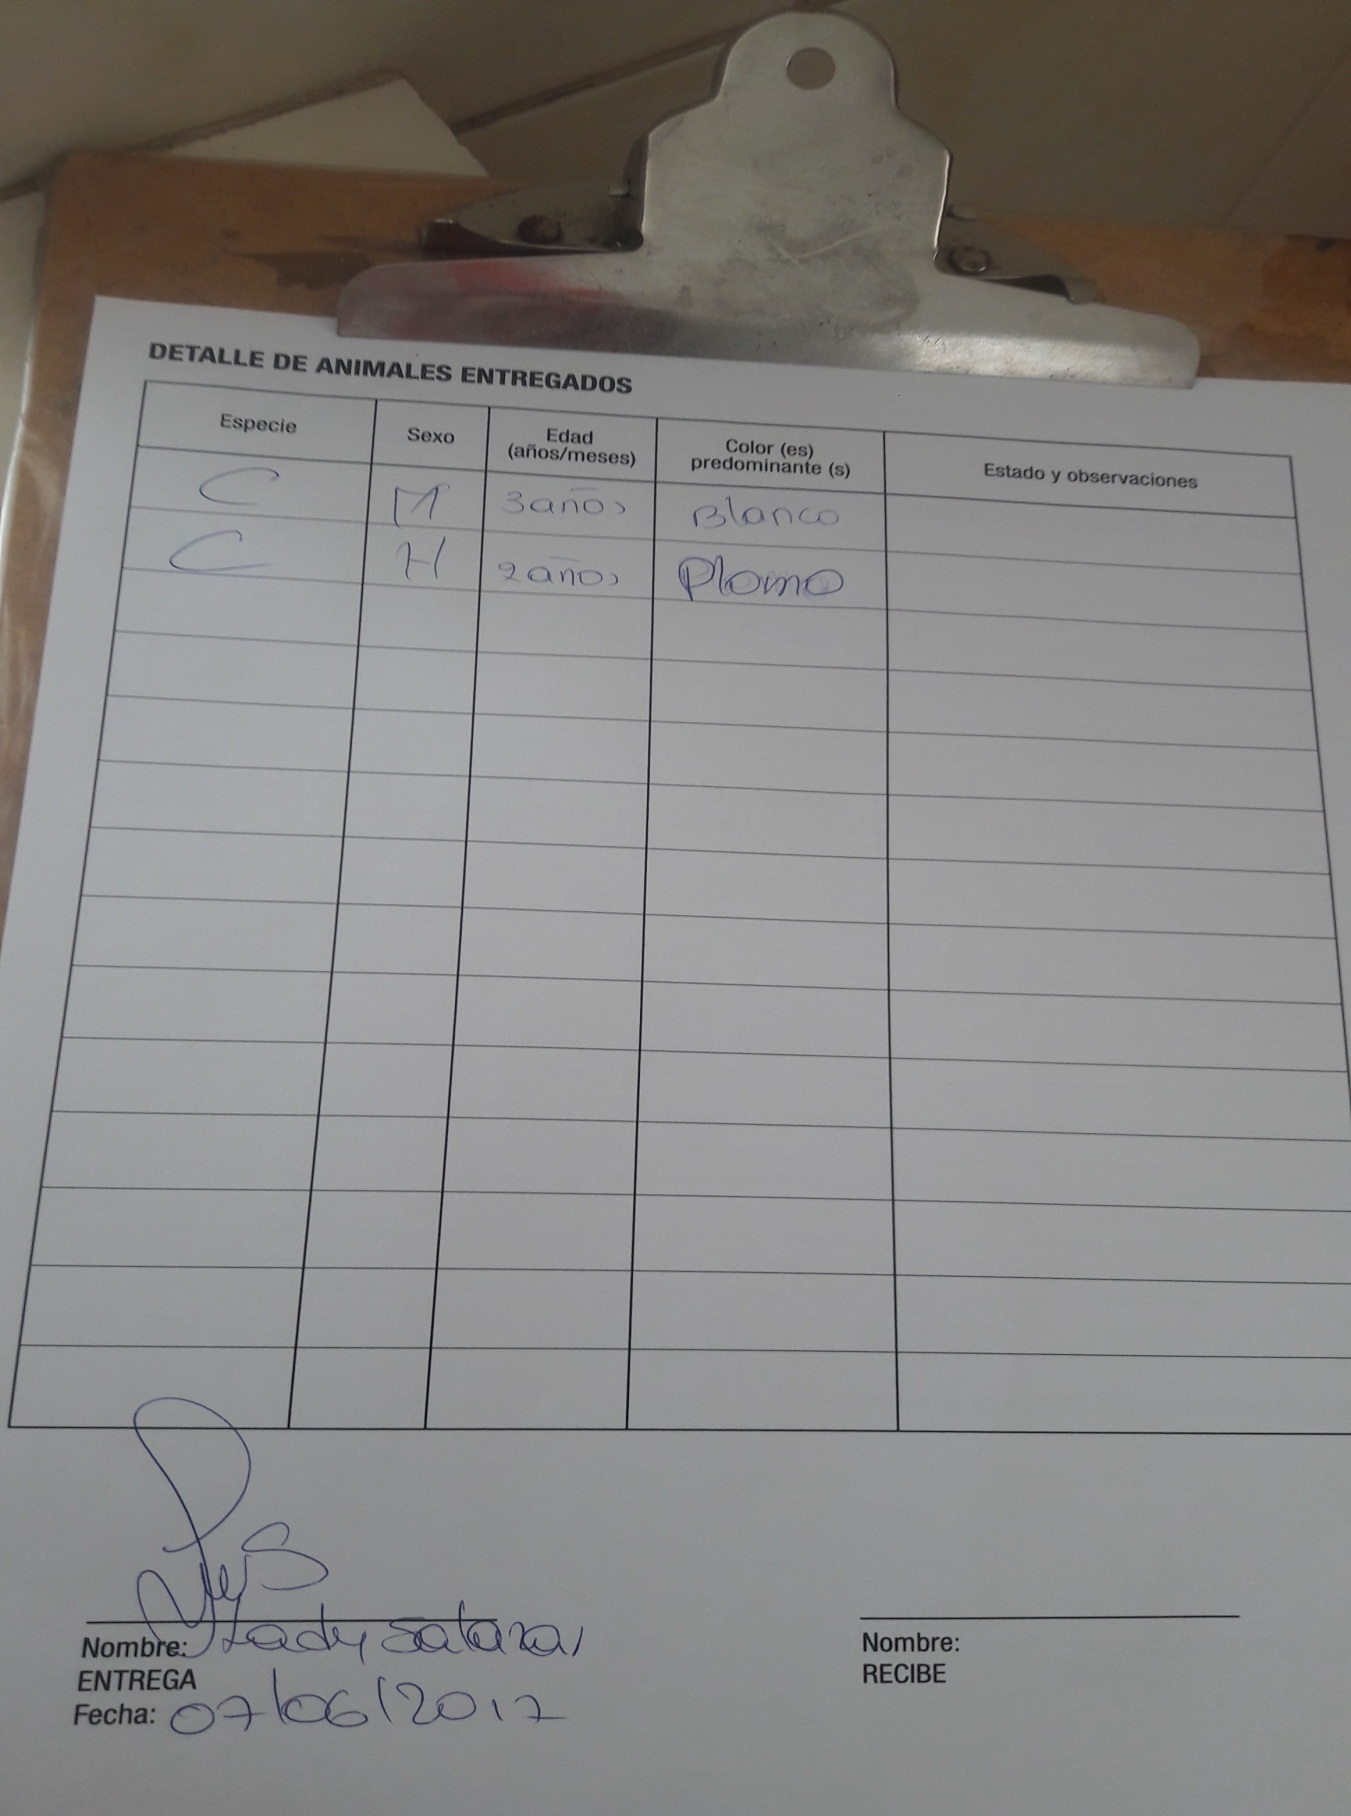 DETALLE DE ANIMALES ENTREGADOS
Especie Sexo Edad (años/meses) Color (es) predominante (s) Estado y observaciones
C M 3 años Blanco
C H 2 años Plomo
Nombre: Lady Salazar
ENTREGA
Fecha: 07/06/2017
Nombre:
RECIBE